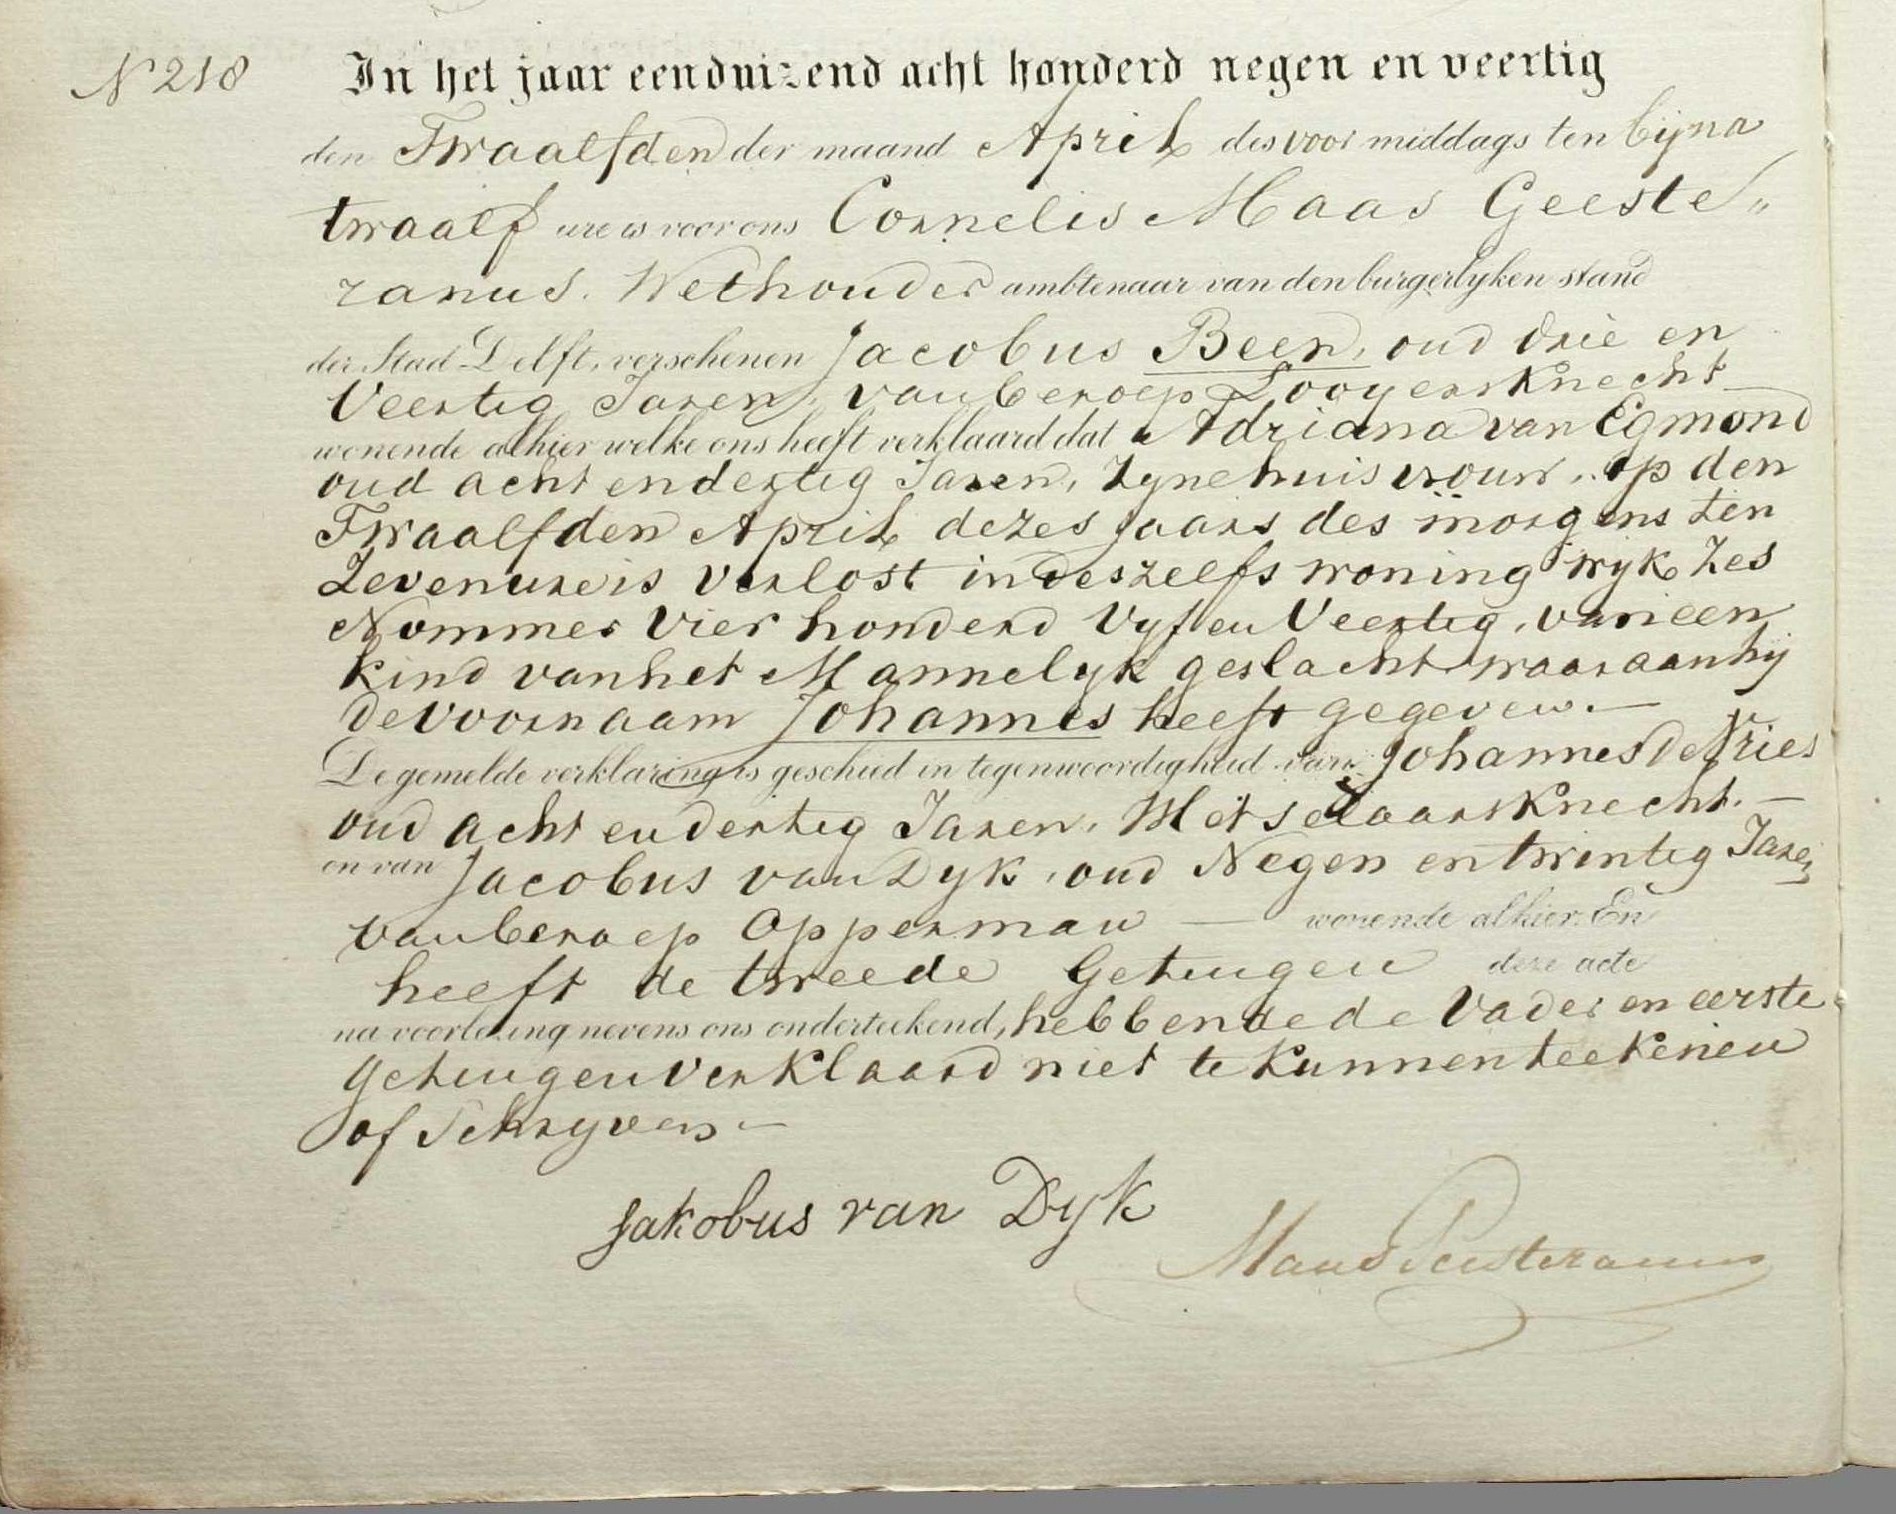 N 218
In het jaar eenduizend acht honderd negen en veertig
den Twaalfden der maand April des voor middags ten bijna
twaalf ure is voor ons Cornelis Maas Geeste„
ranus. Wethouder ambtenaar van den burgerlyken stand
der Stad Delft, verschenen Jacobus Been, oud drie en
Veertig Jaren, van beroep Looyersknecht
wonende alhier welke ons heeft verklaard dat Adriana van Egmond
oud acht en dertig Jaren, Zyne huisvrouw, op den
Twaalfden April dezes jaars des morgens ten
Zeven ure is verlost in deszelfs woning wyk Zes
Nommer Vier honderd Vyf en Veertig, van een
kind van het Mannelyk geslacht waaraan hij
de voornaam Johannes heeft gegeven.—
De gemelde verklaring is geschied in tegenwoordigheid van Johannes de Vries
oud acht en dertig Jaren, Metselaarsknecht. —
en van Jacobus van Dyk, oud Negen en twintig Jaren
van beroep Opperman — wonende alhier. En
heeft de tweede Getuigen deze acte
na voorlezing nevens ons onderteekend, hebbende de Vader en eerste
getuigen verklaard niet te kunnen teekenen
of Schryven —
Jakobus van Dyk
Maas Geesteranus